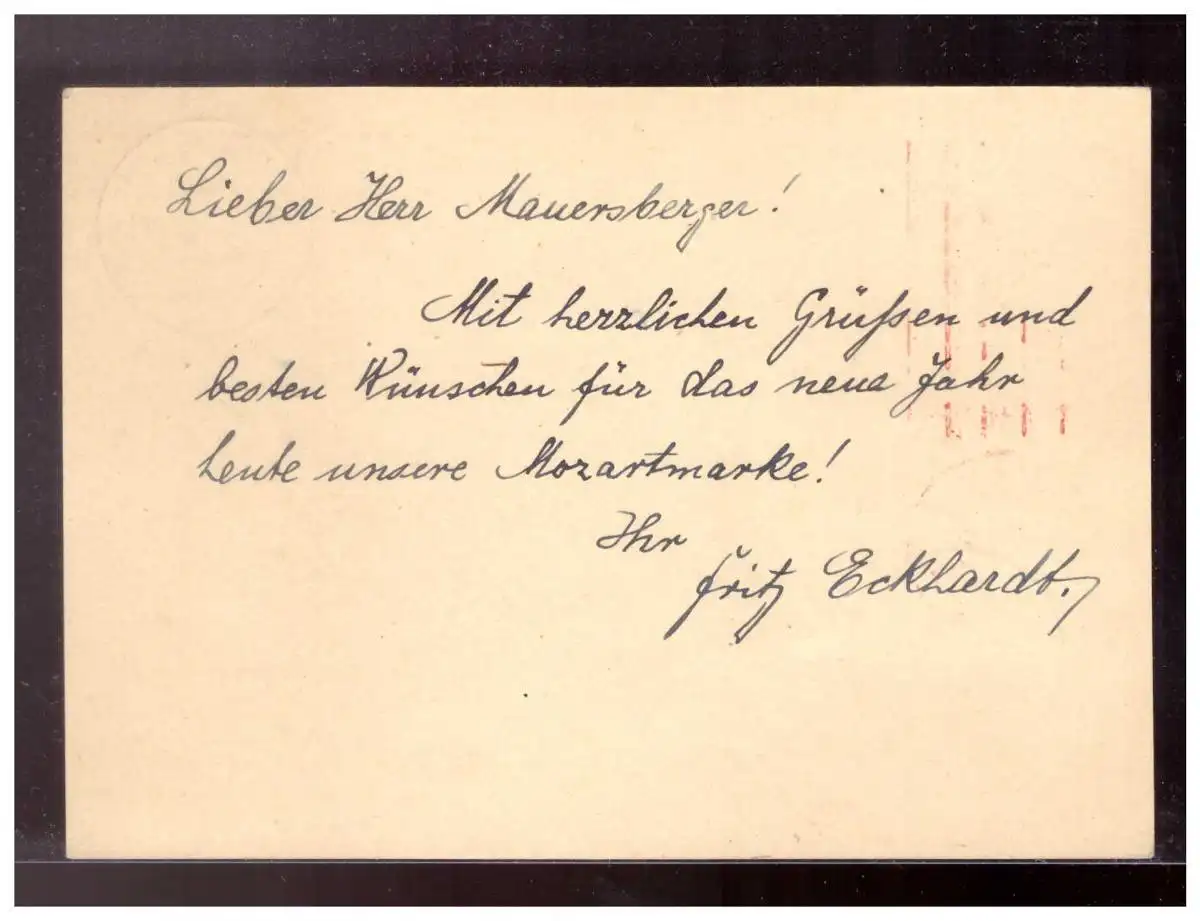 Lieber Herr Mauersberger!
Mit herzlichen Grüßen und
besten Wünschen für das neue Jahr
heute unsere Mozartmarke!
Ihr
Fritz Eckhardt.